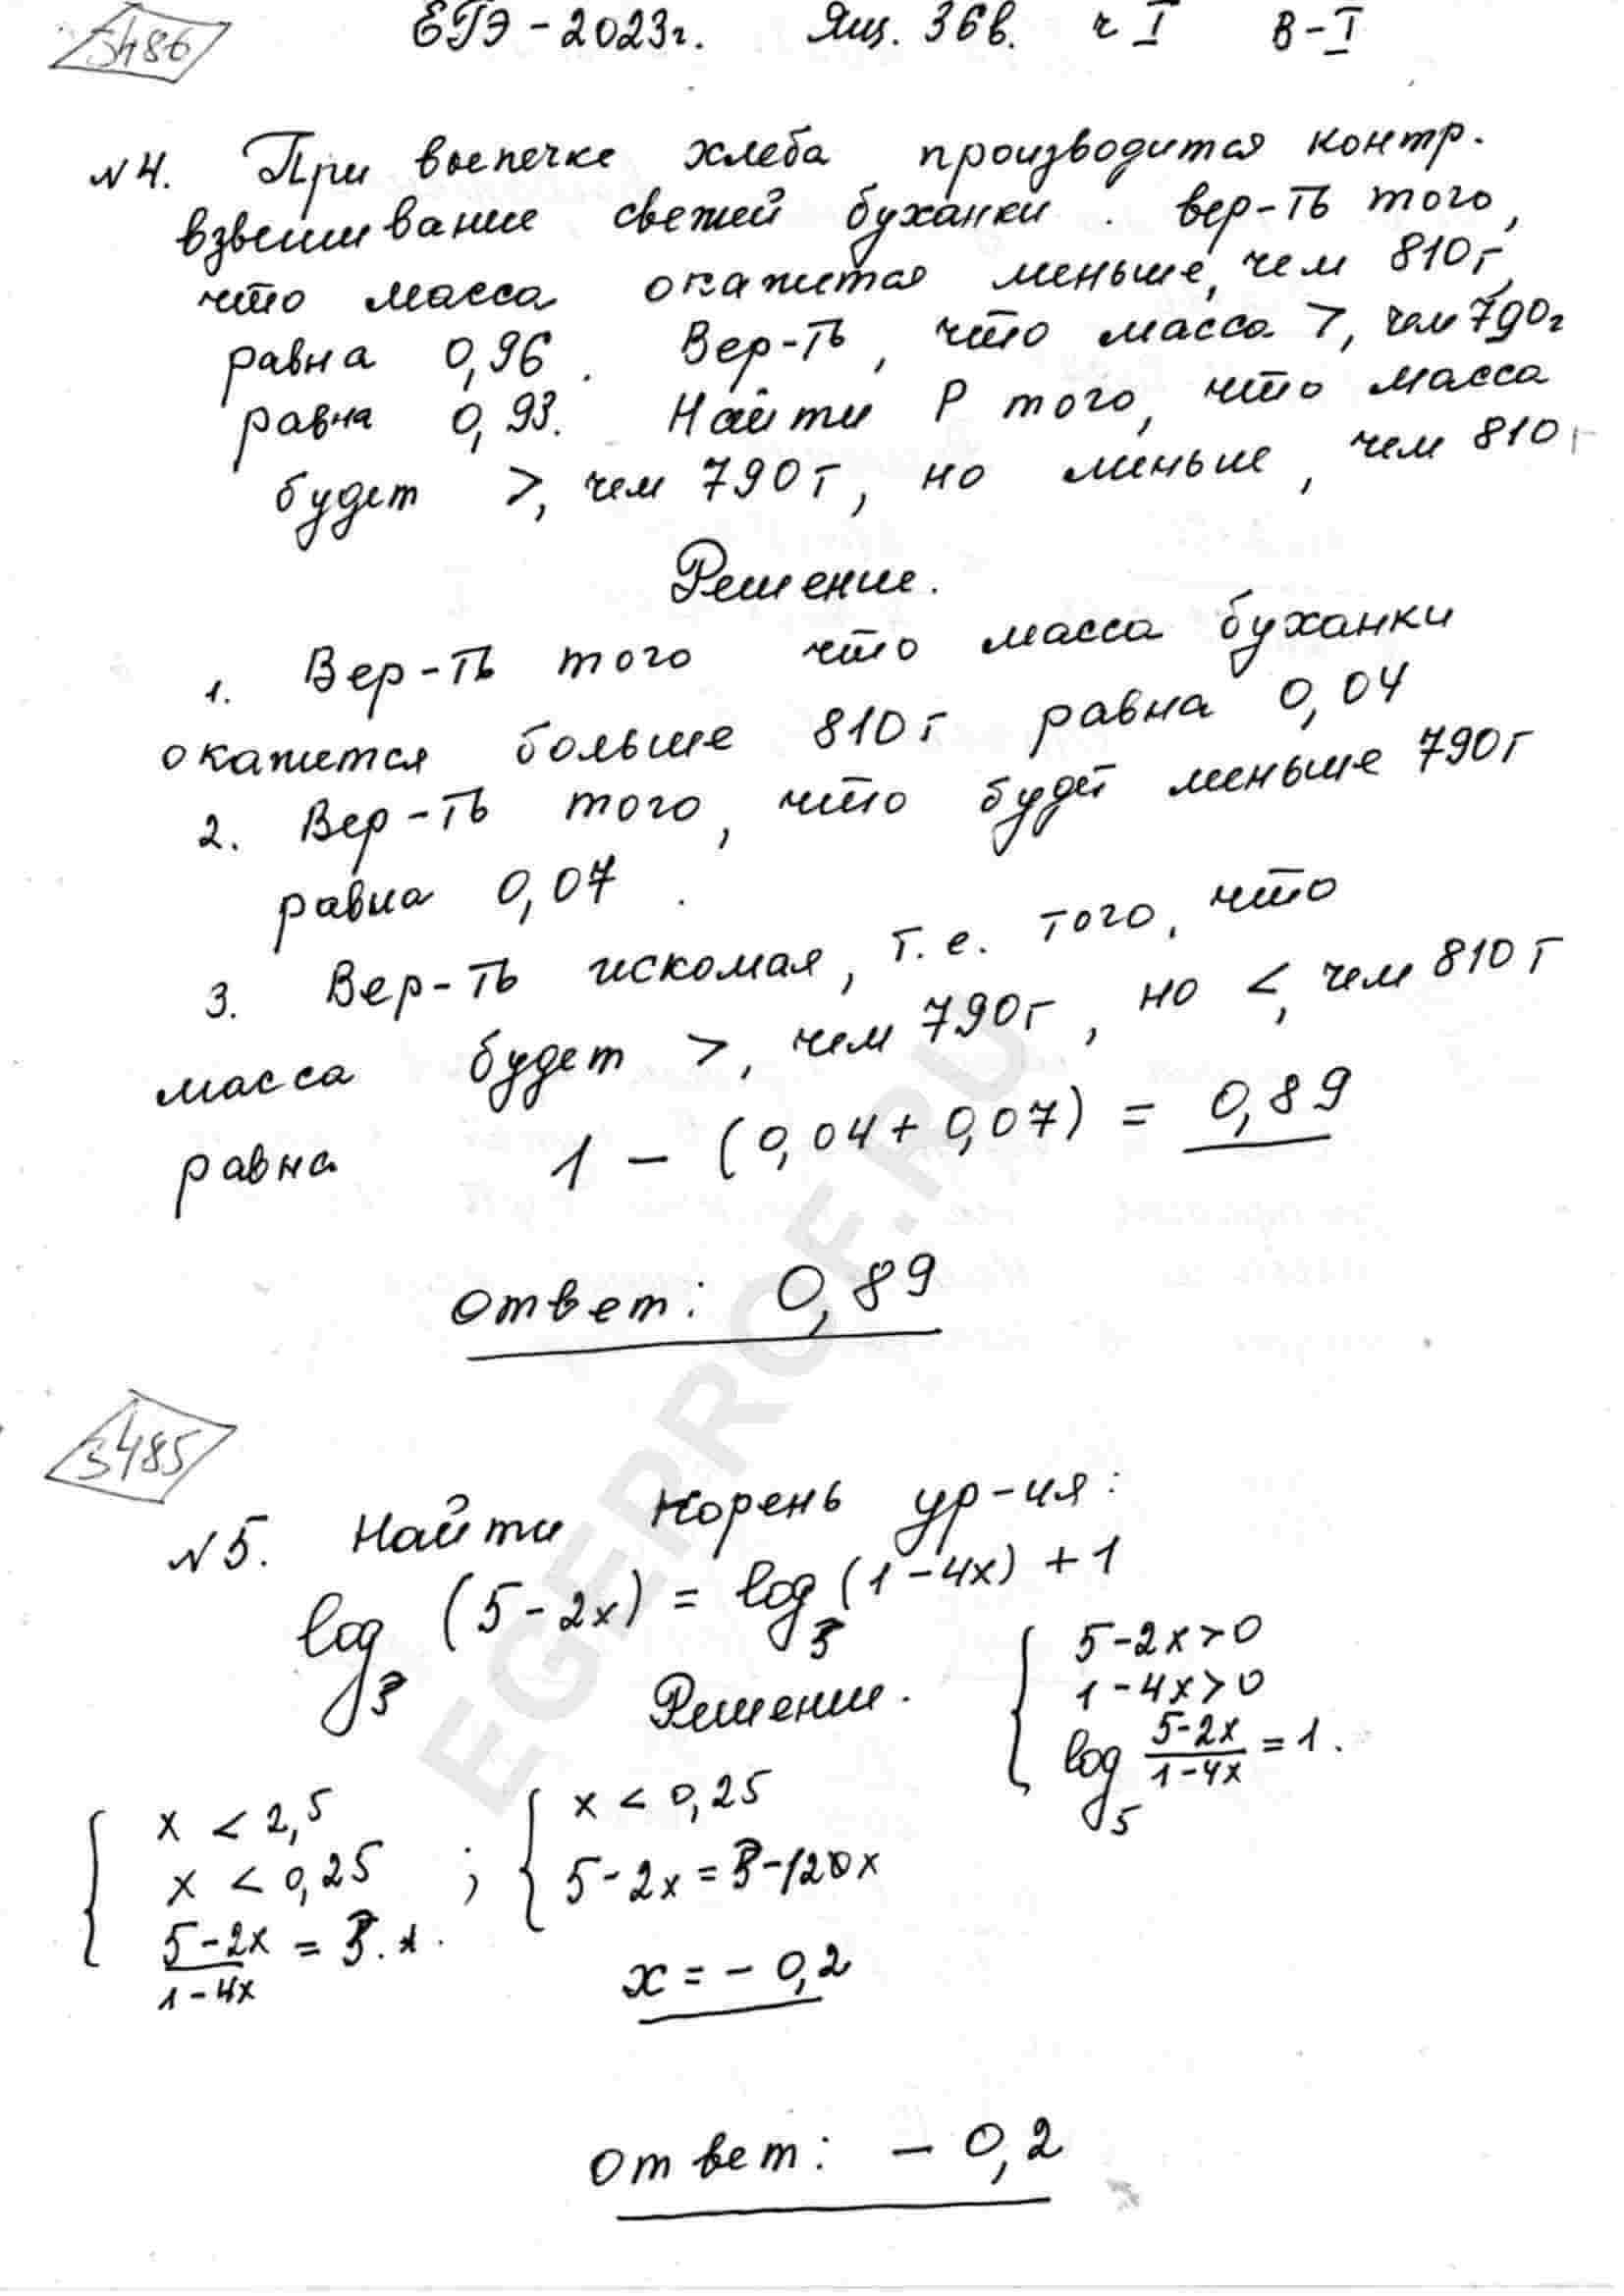 5486
ЕГЭ-2023г. Ящ. 36в. ч I В-I
№4. При выпечке хлеба производится контр.
взвешивание свежей буханки. вер-ть того,
что масса окажется меньше, чем 810г,
равна 0,96. Вер-ть, что масса >, чем 790г
равна 0,93. Найти P того, что масса
будет >, чем 790г, но меньше, чем 810г
Решение.
1. Вер-ть того что масса буханки
окажется больше 810г равна 0,04
2. Вер-ть того, что будет меньше 790г
равна 0,07.
3. Вер-ть искомая, т.е. того, что
масса будет >, чем 790г, но <, чем 810г
равна 1 - (0,04 + 0,07) = 0,89
Ответ: 0,89
5485
№5. Найти корень ур-ия:
log₃ (5-2x) = log₃ (1-4x) + 1
Решение.
{ 5-2x>0
1-4x>0
log₅ (5-2x)/(1-4x) = 1.
{ x < 2,5
x < 0,25
(5-2x)/(1-4x) = 3.
; { x < 0,25
5-2x = 3-12x
x = - 0,2
Ответ: - 0,2
EGEPROF.RU